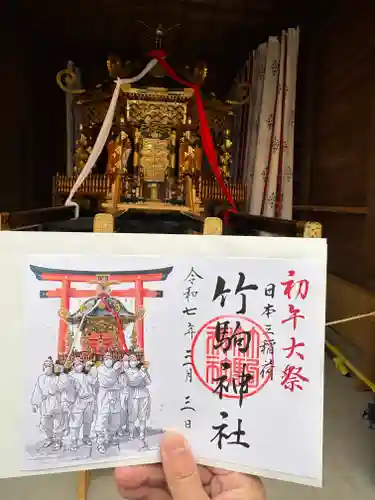 初午大祭
日本三稲荷
竹駒神社
令和七年三月二日